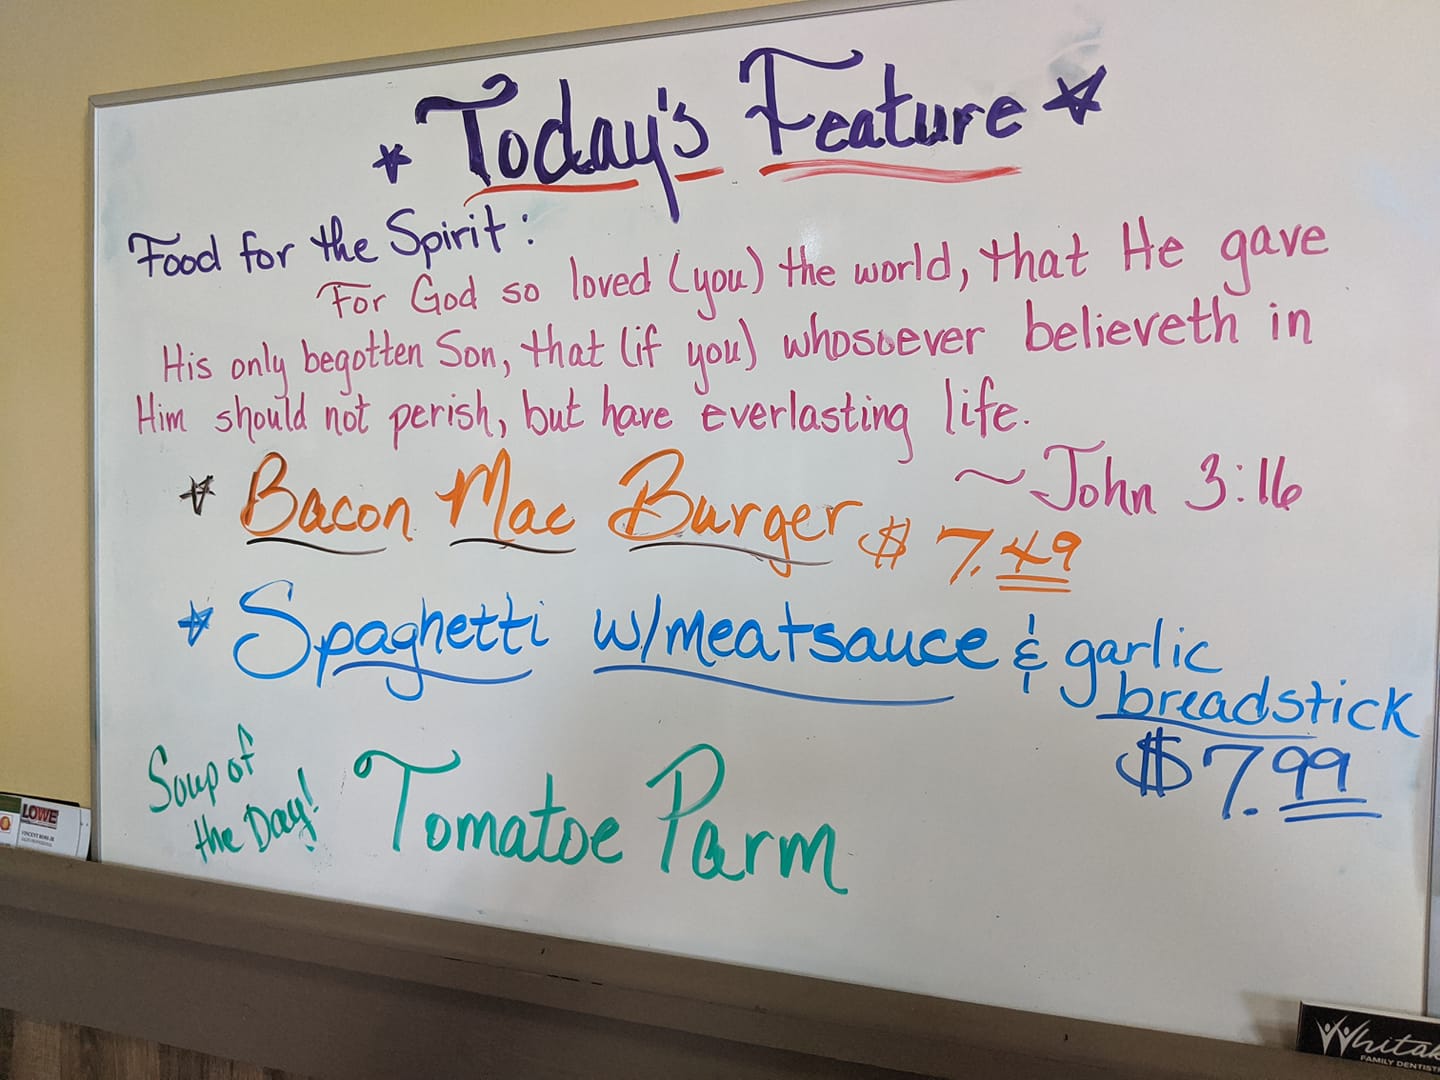 Today's Feature
Food for the Spirit:
For God so loved (you) the world, that He gave
His only begotten Son, that (if you) whosoever believeth in
Him should not perish, but have everlasting life.
~ John 3:16
Bacon Mac Burger $7.49
Spaghetti w/meatsauce & garlic
breadstick
$7.99
Soup of
the Day!
Tomatoe Parm
LOWE
Whitak
FAMILY DENTIST